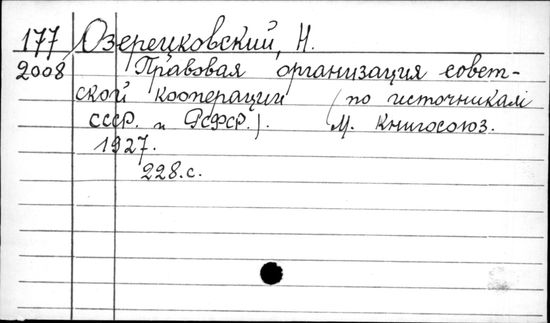 177 Озерецковский, Н.
2008 Правовая организация совет-
ской кооперации (по источникам
СССР. и РСФСР.). М. Книгосоюз.
1927.
228.с.